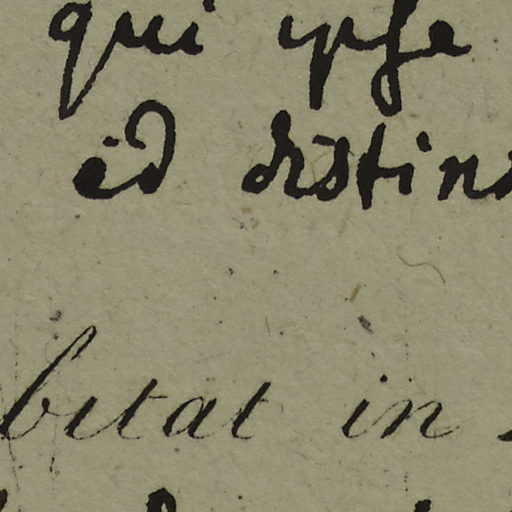 qui ipse
id distin
bitat in